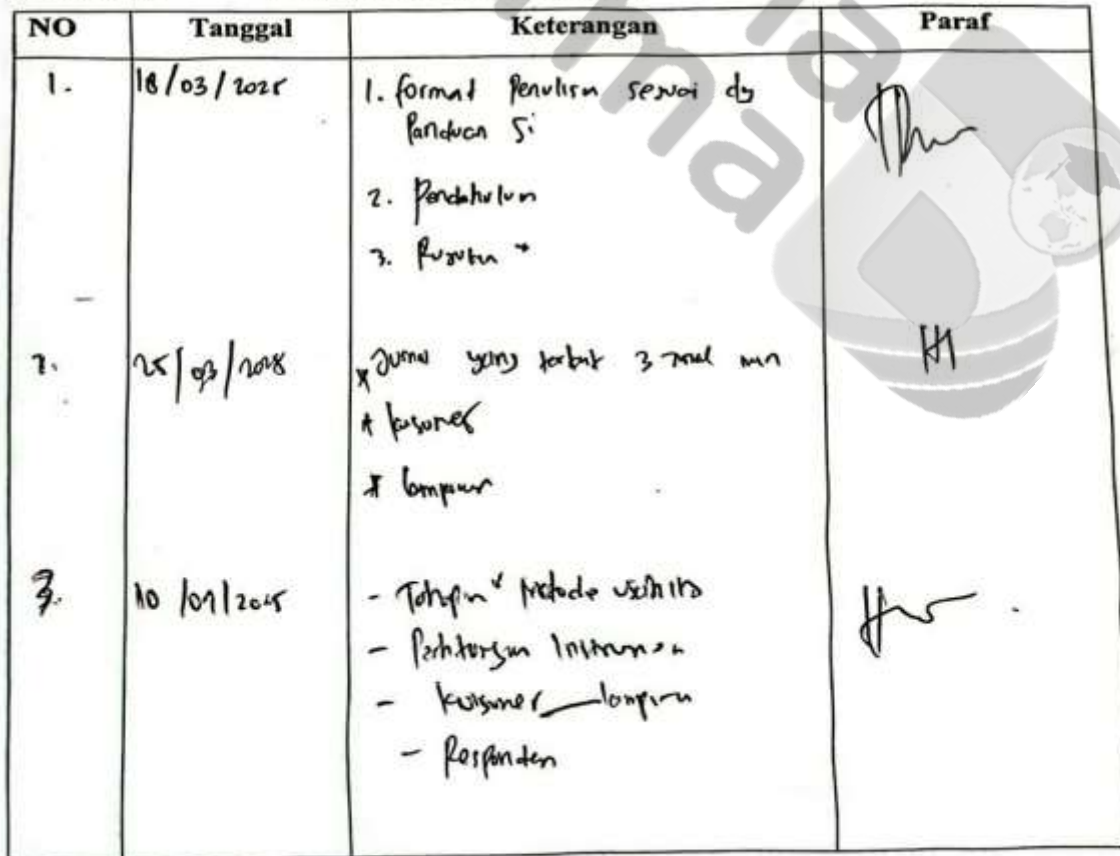 NO Tanggal Keterangan Paraf
1. 18/03/2025 1. format Penulisan sesuai dg
Panduan Si
2. Pendahuluan
3.
2. 25/03/2025 * Jurnal yang terbit 3 min
* kuisoner
* lampiran
3. 10/ /2025 - Tahapan metode
- Perhitungan Instrumen
- kuisoner lampiran
- Responden